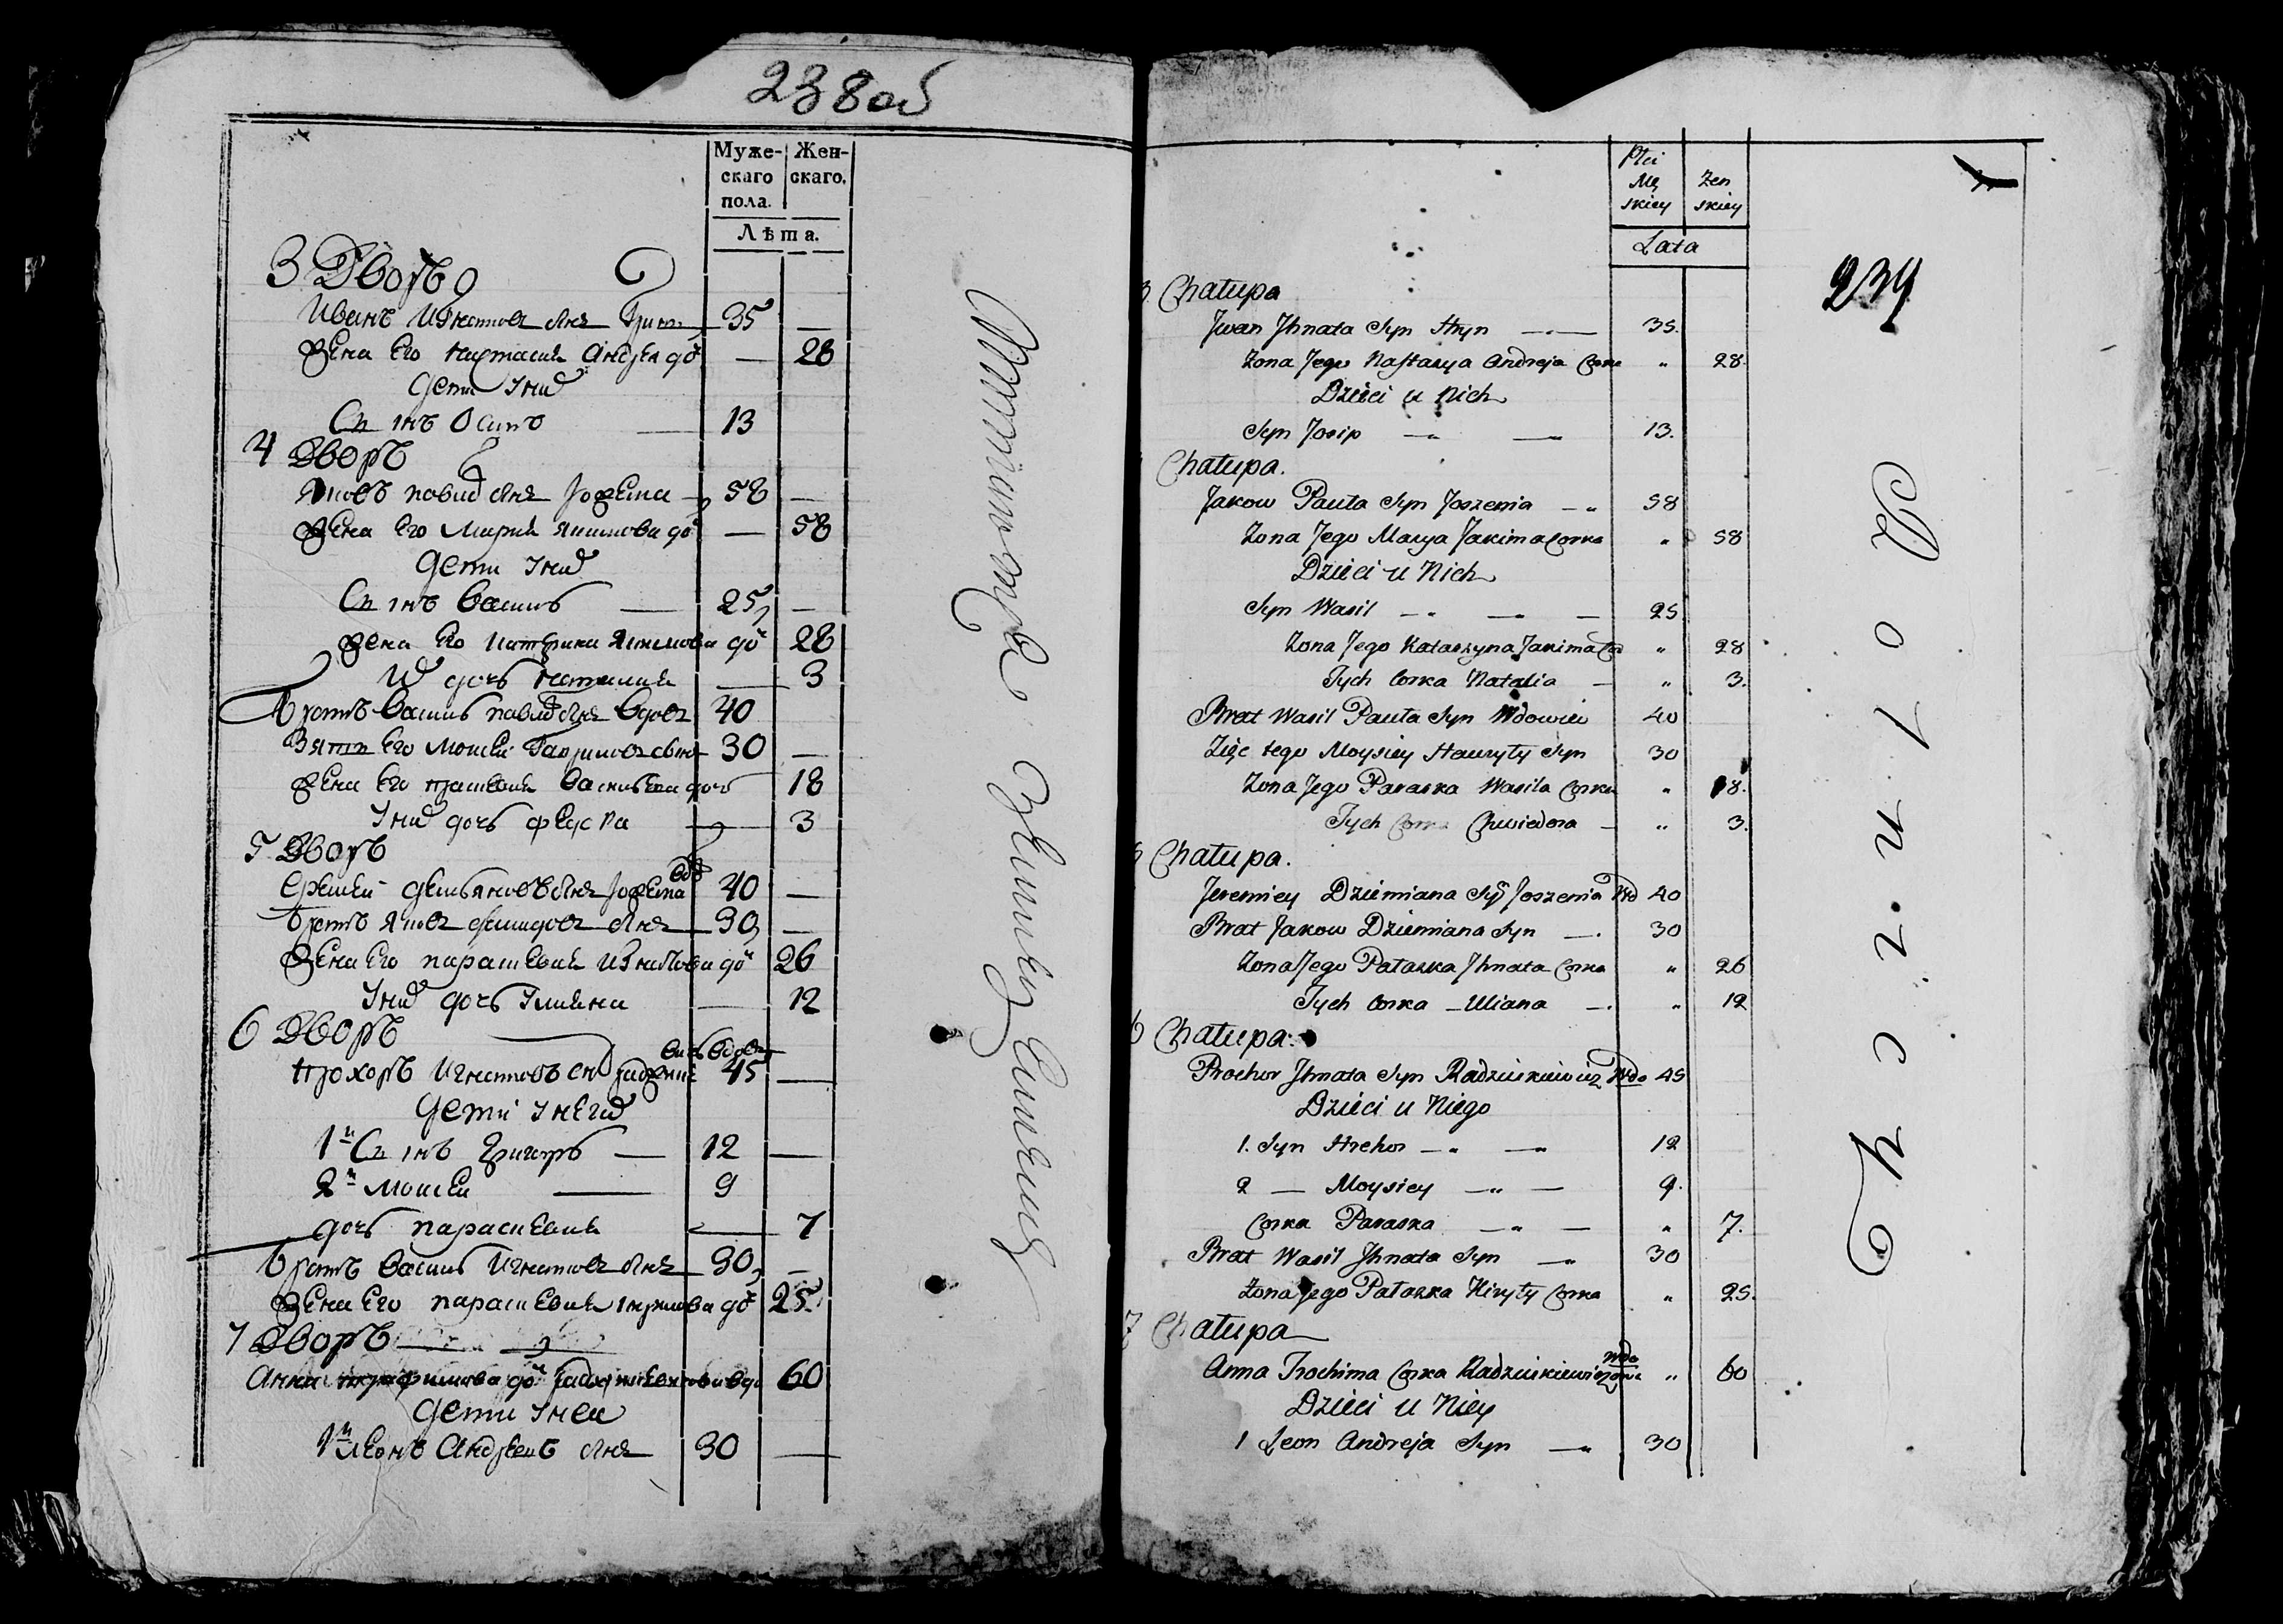 238 об
Муже-
скаго
пола.
Жен-
скаго.
Лѣта.
3 Дворъ
Иванъ Игнатов сынъ Грин 35 —
Жена Его Настасия Андрея доч — 28
дети у них
Сынъ Осипъ — 13
4 Дворъ
Яковъ павлов сынъ 58 —
Жена Его Мария Якимова доч — 58
Дети у них
Сынъ Василь — 25 —
Жена Его Катерина Якимова доч 28
их дочь Наталия — 3
Братъ Василь павлов сынъ вдов 40
Зять Его Мойсей Гаврилов сынъ 30 —
Жена Его Прасковия Васильева дочь 18
У них дочь Федоска — 3
5 Дворъ
Еремей демьяновъ сынъ вдов 40 —
Братъ Яков демидов сынъ 30 —
Жена Его параскевия Игнатова доч 26
У них дочь Улияна — 12
6 Дворъ
Прохоръ Игнатовъ сын вдов 45 —
Дети у него
1й Сынъ Григоръ — 12 —
2й Мойсей — 9
дочь параскевия — 7
Братъ Василь Игнатов сынъ 30 —
Жена Его параскевия Кирилова доч 25
7 Дворъ
Анна доч 60
дети у неи
1й Леонъ Андреевъ сынъ 30 —
Płci
Mę
skiey
Żen
skiey
Lata
239
3 Chałupa
Jwan Jhnata Syn Hryn — 35.
Żona Jego Nastasya Andreja Corka " 28.
Dzieci u Nich
Syn Josip — — 13.
Chałupa.
Jakow Pauła Syn Joszenia — " 58
Żona Jego Marya Jakima Corka " 58
Dzieci u Nich
Syn Wasil — — — 25
Żona Jego Katarzyna Jakima Co " 28
Tych Corka Natalia — " 3.
Brat Wasil Pauła Syn Wdowiec 40
Zięc tego Moysiey Hawryły Syn 30
Żona Jego Paraska Wasila Corka " 18.
Tych Corka Chwiedora — " 3.
5 Chałupa.
Jeremiey Dziemiana Syn Joszenia Wd 40
Brat Jakow Dziemiana Syn — 30
Żona Jego Paraska Jhnata Corka " 26
Tych Corka — Uliana — " 12
6 Chałupa.
Prochor Jhnata Syn Radziukiewicz Wdo 45
Dzieci u Niego
1. Syn Hrehor — " — 12
2 — Moysiey — " — 9.
Corka Paraska — " — " 7.
Brat Wasil Jhnata Syn — 30
Żona Jego Paraska Kiryły Corka " 25.
7 Chałupa
Anna Trochima Corka Radziukiewiczowa Wdo " 60
Dzieci u Niey
1 Leon Andreja Syn — 30